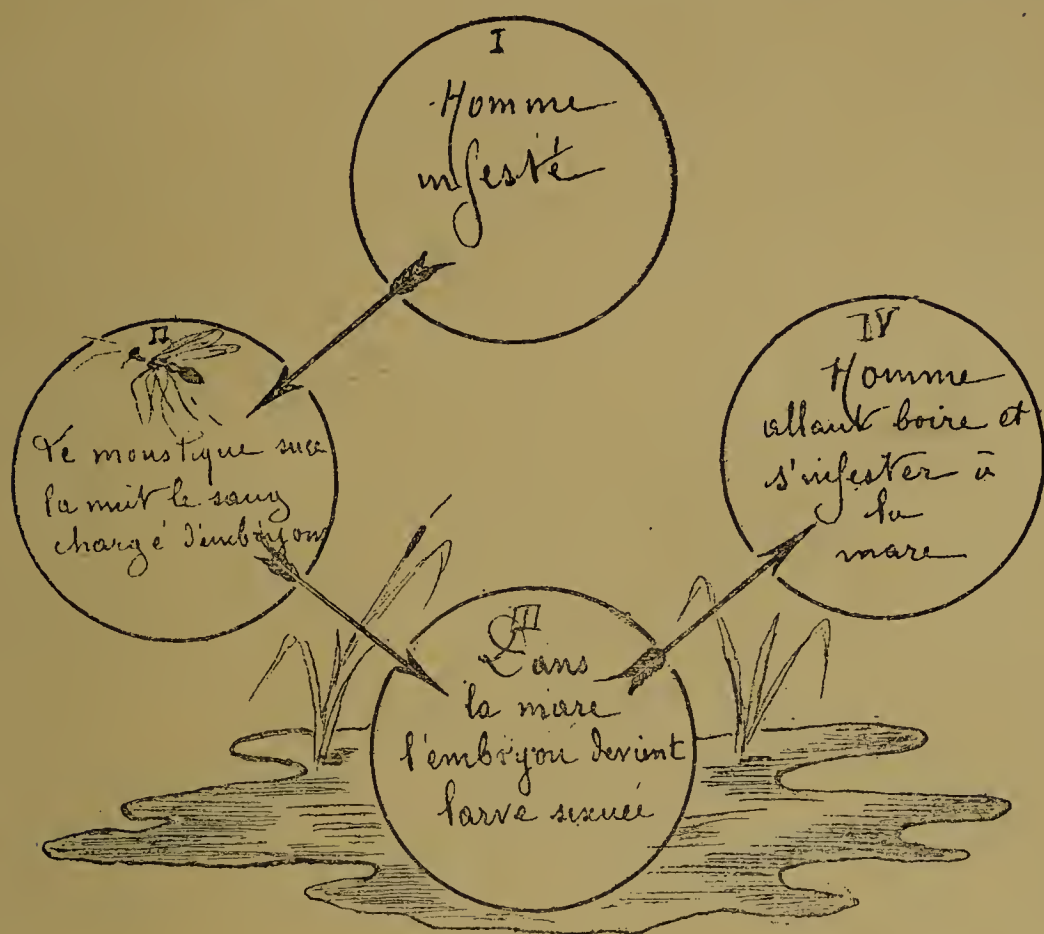 I
Homme
infesté
II
Le moustique suce
la nuit le sang
chargé d'embryons
III
Dans
la mare
l'embryon devient
larve sexuée
IV
Homme
allant boire et
s'infester à
la
mare